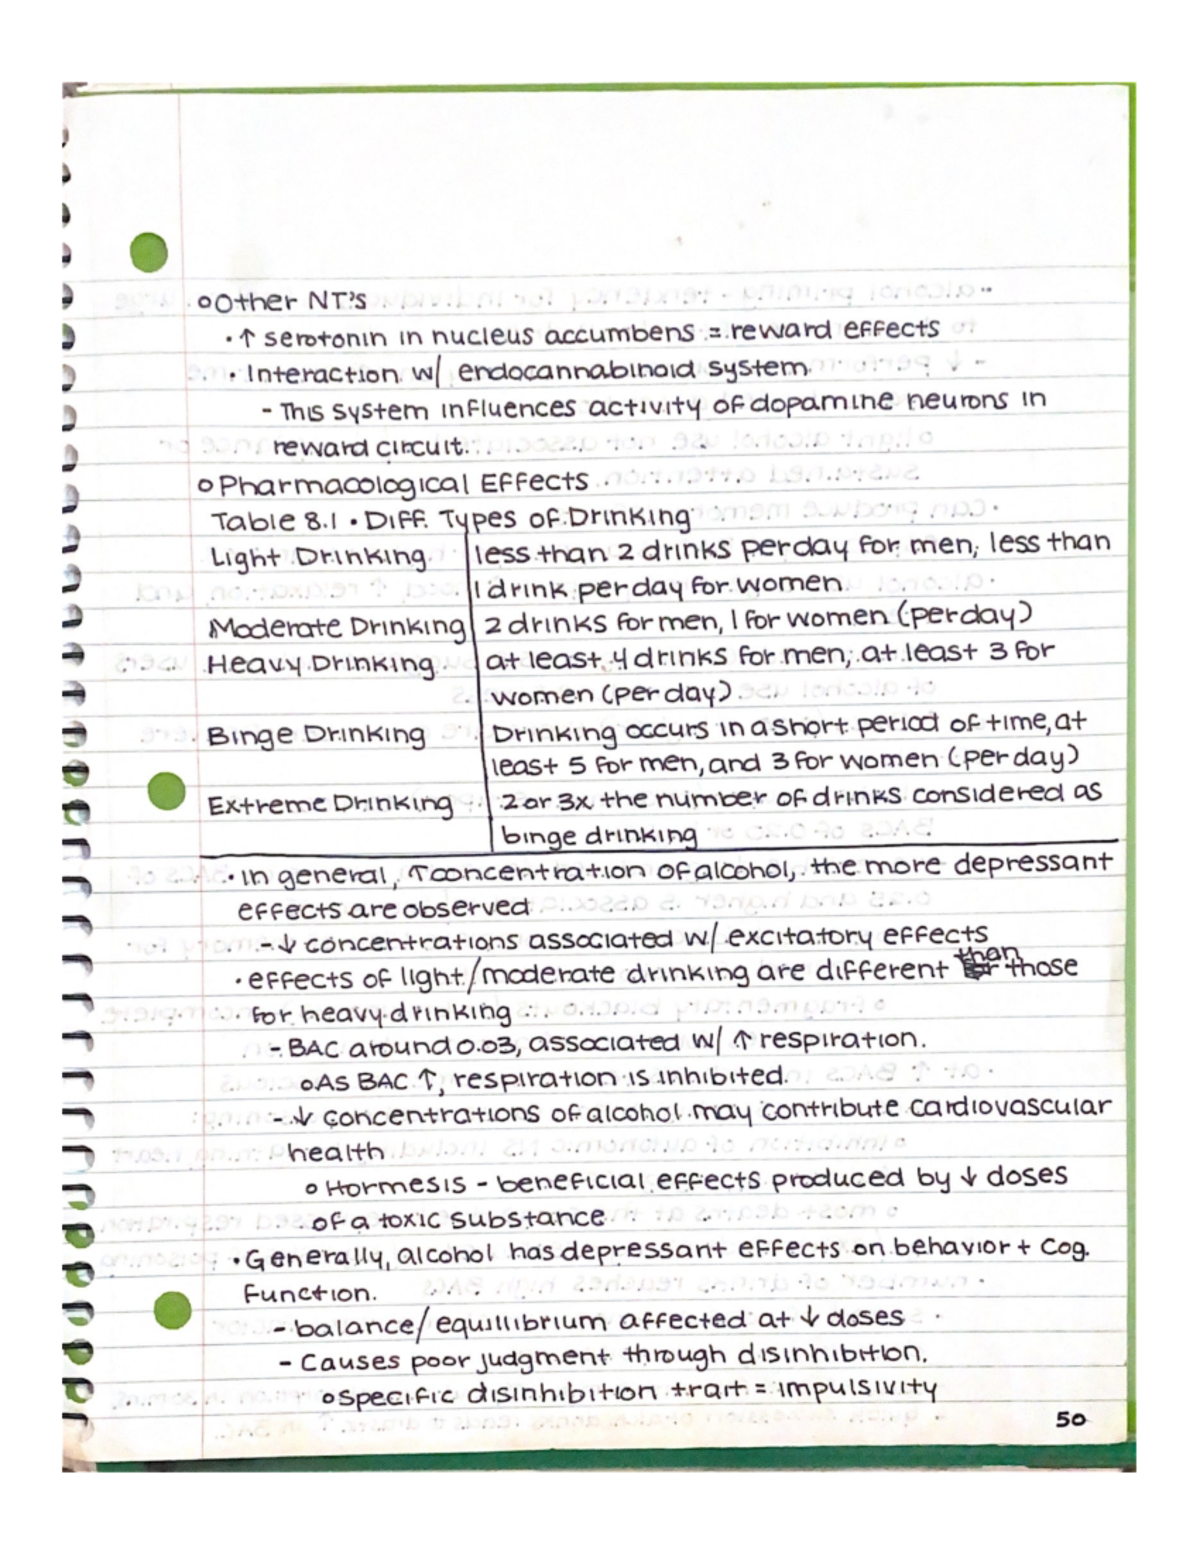 o Other NT's
• ↑ serotonin in nucleus accumbens = reward effects
• Interaction w/ endocannabinoid system
- This system influences activity of dopamine neurons in
reward circuit.
o Pharmacological Effects
Table 8.1 • Diff. Types of Drinking
Light Drinking less than 2 drinks per day for men, less than
1 drink per day for women
Moderate Drinking 2 drinks for men, 1 for women (per day)
Heavy Drinking at least 4 drinks for men, at least 3 for
women (per day)
Binge Drinking Drinking occurs in a short period of time, at
least 5 for men, and 3 for women (per day)
Extreme Drinking 2 or 3x the number of drinks considered as
binge drinking
• In general, ↑ concentration of alcohol, the more depressant
effects are observed
- ↓ concentrations associated w/ excitatory effects
• effects of light/moderate drinking are different than those
for heavy drinking
- BAC around 0.03, associated w/ ↑ respiration.
o As BAC ↑, respiration is inhibited.
- ↓ concentrations of alcohol may contribute cardiovascular
health
o Hormesis - beneficial effects produced by ↓ doses
of a toxic substance
• Generally, alcohol has depressant effects on behavior + cog.
function.
- balance/equillibrium affected at ↓ doses
- Causes poor judgment through disinhibition.
o specific disinhibition trait = impulsivity
50